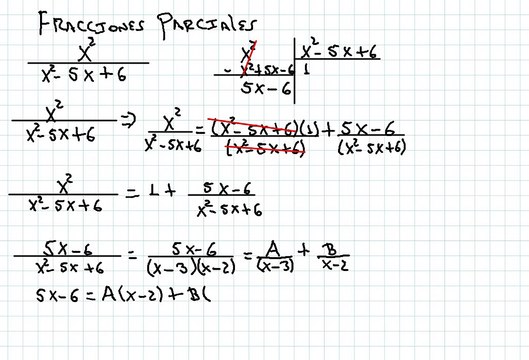 FRACCIONES PARCIALES
x² / (x² - 5x + 6)
x² | x² - 5x + 6
- x² + 5x - 6 | 1
5x - 6
x² / (x² - 5x + 6) => x² / (x² - 5x + 6) = (x² - 5x + 6)(1) / (x² - 5x + 6) + 5x - 6 / (x² - 5x + 6)
x² / (x² - 5x + 6) = 1 + (5x - 6) / (x² - 5x + 6)
(5x - 6) / (x² - 5x + 6) = (5x - 6) / (x - 3)(x - 2) = A / (x - 3) + B / (x - 2)
5x - 6 = A(x - 2) + B(